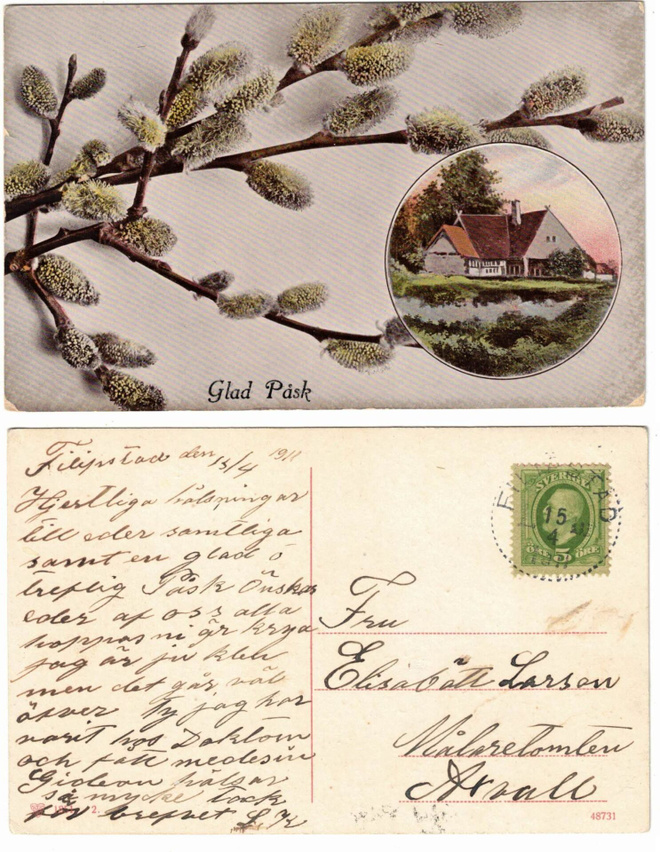 Glad Påsk
Filipstad den 15/4 1911
Hjertliga hälsningar
till eder samtliga
samt en glad o
treflig Påsk Önskas
eder af oss alla
hoppas ni är krya
jag är ju klen
men det går väl
öfver ty jag har
varit hos Doktorn
och fått medesin
Gideon hälsar
så mycke tack
för brefvet L.K
2.
SVERIGE
15
4
5
ÖRE
Fru
Elisabätt Larson
Målaretomten
Arvall
48731